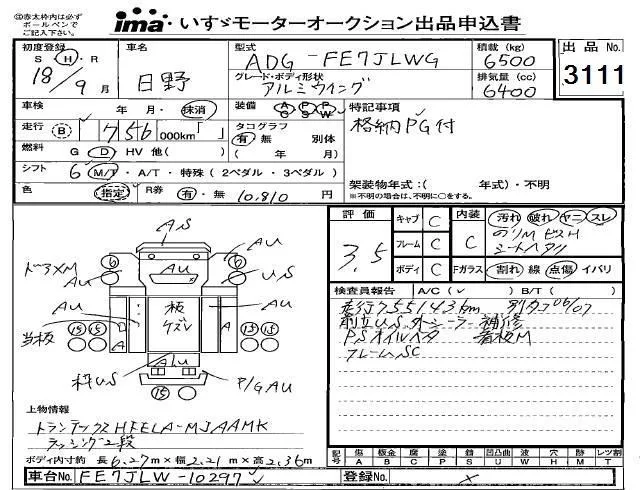 ㊟赤太枠内は必ず
ボールペンで
ご記入下さい。
ima いすゞモーターオークション出品申込書
初度登録 車名 型式 積載 (kg) 出品No.
S H・R 日野 ADG-FE7JLWG 6500 3111
18/9月 グレード・ボディ形状 排気量 (cc)
アルミウイング 6400
車検 年・月・抹消 装備 A/G P/S P/W 特記事項
走行 B 756 000km「 」 タコグラフ 格納PG付
有・無 別体
燃料 G D HV 他( ) ( 年 月)
シフト 6 M/T・A/T・特殊 (2ペダル・3ペダル)
色 指定 R券 有・無 10,810 円
架装物年式:( 年式)・不明
※不明の場合は、不明に○をする。
評価 3.5
キャブ C 内装 C 汚れ 破れ ヤニ スレ
フレーム C
シートヘタリ
ボディ C Fガラス 割れ 線 点傷 イバリ
検査員報告 A/C(✓) B/T( )
走行755143km 別タコ06/07
補修
PSオイル 看板M
フレームSC
AS
AU AU
ドアXM 6 6 US
AU AU AU
板
ズレ
当板 15 15 D A A 15 15
ALU
枠US 15 P/G AU
上物情報
トランテックス HFELA-MJAAMK
ラッシング2段
ボディ内寸約 長6.27m×幅2.21m×高2.36m
記号 傷 板金 腐 塗 錆 凹凸曲 波 穴 跡 レツ割
A B C P S U W H M T
車台No. FE7JLW-10297 登録No. ×